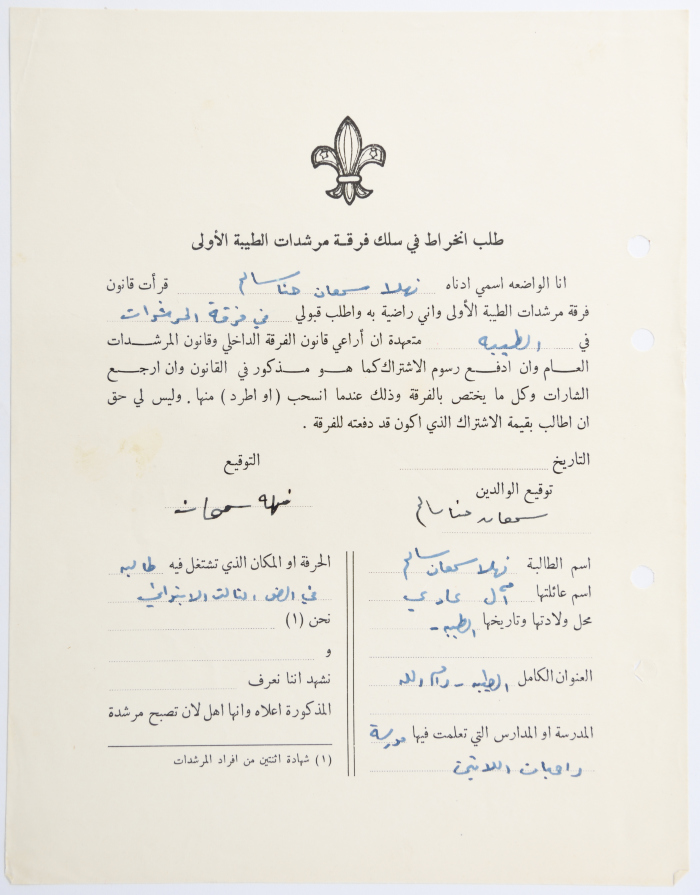 طلب انخراط في سلك فرقة مرشدات الطيبة الأولى
انا الواضعه اسمي ادناه نهلا سمعان حنا سالم قرأت قانون
فرقة مرشدات الطيبة الأولى واني راضية به واطلب قبولي في فرقة المرشدات
في الطيبه متعهدة ان أراعي قانون الفرقة الداخلي وقانون المرشدات
العام وان ادفع رسوم الاشتراك كما هو مذكور في القانون وان ارجع
الشارات وكل ما يختص بالفرقة وذلك عندما انسحب (او اطرد) منها. وليس لي حق
ان اطالب بقيمة الاشتراك الذي اكون قد دفعته للفرقة.
التاريخ
التوقيع
توقيع الوالدين
سمعان حنا سالم
سمعان
اسم الطالبة نهلا سمعان سالم
اسم عائلتها
محل ولادتها وتاريخها الطيبه -
العنوان الكامل الطيبه - رام الله
المدرسة او المدارس التي تعلمت فيها مدرسة
راهبات اللاتين
الحرفة او المكان الذي تشتغل فيه طالبه
في الصف الثالث الابتدائي
نحن (١)
و
نشهد اننا نعرف
المذكورة اعلاه وانها اهل لان تصبح مرشدة
(١) شهادة اثنتين من افراد المرشدات